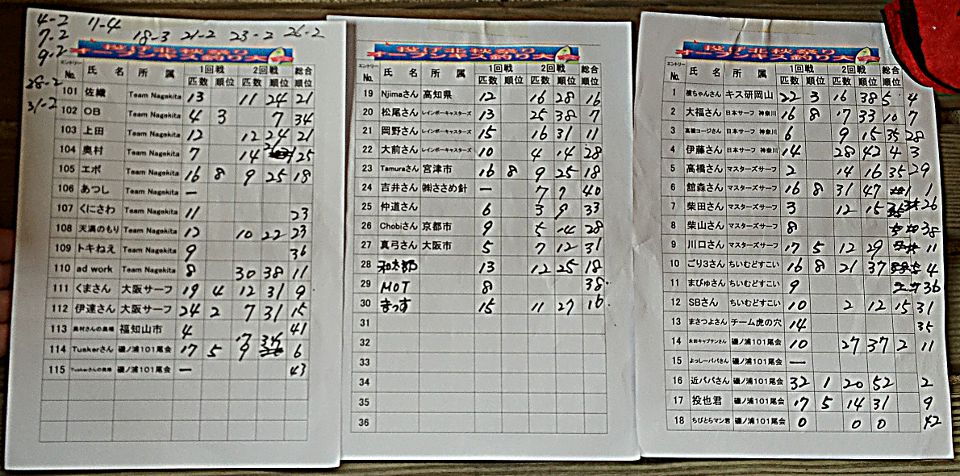 4-2 11-4
7-2 18-3 21-2 23-2 26-2
1-2
9-2
28-2
31-2
投げ北秋祭り
オープンキス釣り大
エントリー No. 氏 名 所 属 1回戦 匹数 順位 2回戦 匹数 順位 総合 順位
101 佐織 Team Nagekita 13 11 24 21
102 OB Team Nagekita 4 3 7 34
103 上田 Team Nagekita 12 12 24 21
104 奥村 Team Nagekita 7 14 25
105 エボ Team Nagekita 16 8 9 25 18
106 あつし Team Nagekita ー
107 くにさわ Team Nagekita 11 23
108 天満のもり Team Nagekita 12 10 22 23
109 トキねえ Team Nagekita 9 36
110 ad work Team Nagekita 8 30 38 11
111 くまさん 大阪サーフ 19 4 12 31 9
112 伊達さん 大阪サーフ 24 2 7 31 15
113 奥村さんの奥様 福知山市 4 41
114 Tuskerさん 磯ノ浦101尾会 17 5 9 6
115 Tuskerさんの奥様 磯ノ浦101尾会 ー 43
投げ北秋祭り
オープンキス釣り大
エントリー No. 氏 名 所 属 1回戦 匹数 順位 2回戦 匹数 順位 総合 順位
19 Njimaさん 高知県 12 16 28 16
20 松尾さん レインボーキャスターズ 13 25 38 7
21 岡野さん レインボーキャスターズ 15 16 31 11
22 大前さん レインボーキャスターズ 10 4 14 28
23 Tamuraさん 宮津市 16 8 9 25 18
24 吉井さん ㈱ささめ針 ー 7 7 40
25 仲道さん 6 3 9 33
26 Chobiさん 京都市 9 5 14 28
27 真弓さん 大阪市 5 7 12 31
28 和太郎 13 12 25 18
29 MOT 8 38
30 まっす 15 11 27 16
31
32
33
34
35
36
投げ北秋祭り
オープンキス釣り大
エントリー No. 氏 名 所 属 1回戦 匹数 順位 2回戦 匹数 順位 総合 順位
1 キス研岡山 22 3 16 38 5 4
2 大福さん 日本サーフ 神奈川 16 8 17 33 10 7
3 高橋コージさん 日本サーフ 神奈川 6 9 15 35 28
4 伊藤さん 日本サーフ 神奈川 14 28 42 4 3
5 高橋さん マスターズサーフ 2 14 16 35 29
6 舘森さん マスターズサーフ 16 8 31 47 1 1
7 柴田さん マスターズサーフ 3 12 15 26
8 柴山さん マスターズサーフ 8 38
9 川口さん マスターズサーフ 17 5 12 29 11
10 ごり3さん ちいむどすこい 16 8 21 37 4
11 まびゅさん ちいむどすこい 9 36
12 SBさん ちいむどすこい 10 2 12 15 31
13 まさつよさん チーム虎の穴 14 35
14 磯ノ浦101尾会 10 27 37 2 11
15 よっしーパパさん 磯ノ浦101尾会 ー
16 近パパさん 磯ノ浦101尾会 32 1 20 52 2
17 投也君 磯ノ浦101尾会 17 5 14 31 9
18 ちびとらマン君 磯ノ浦101尾会 0 0 0 42